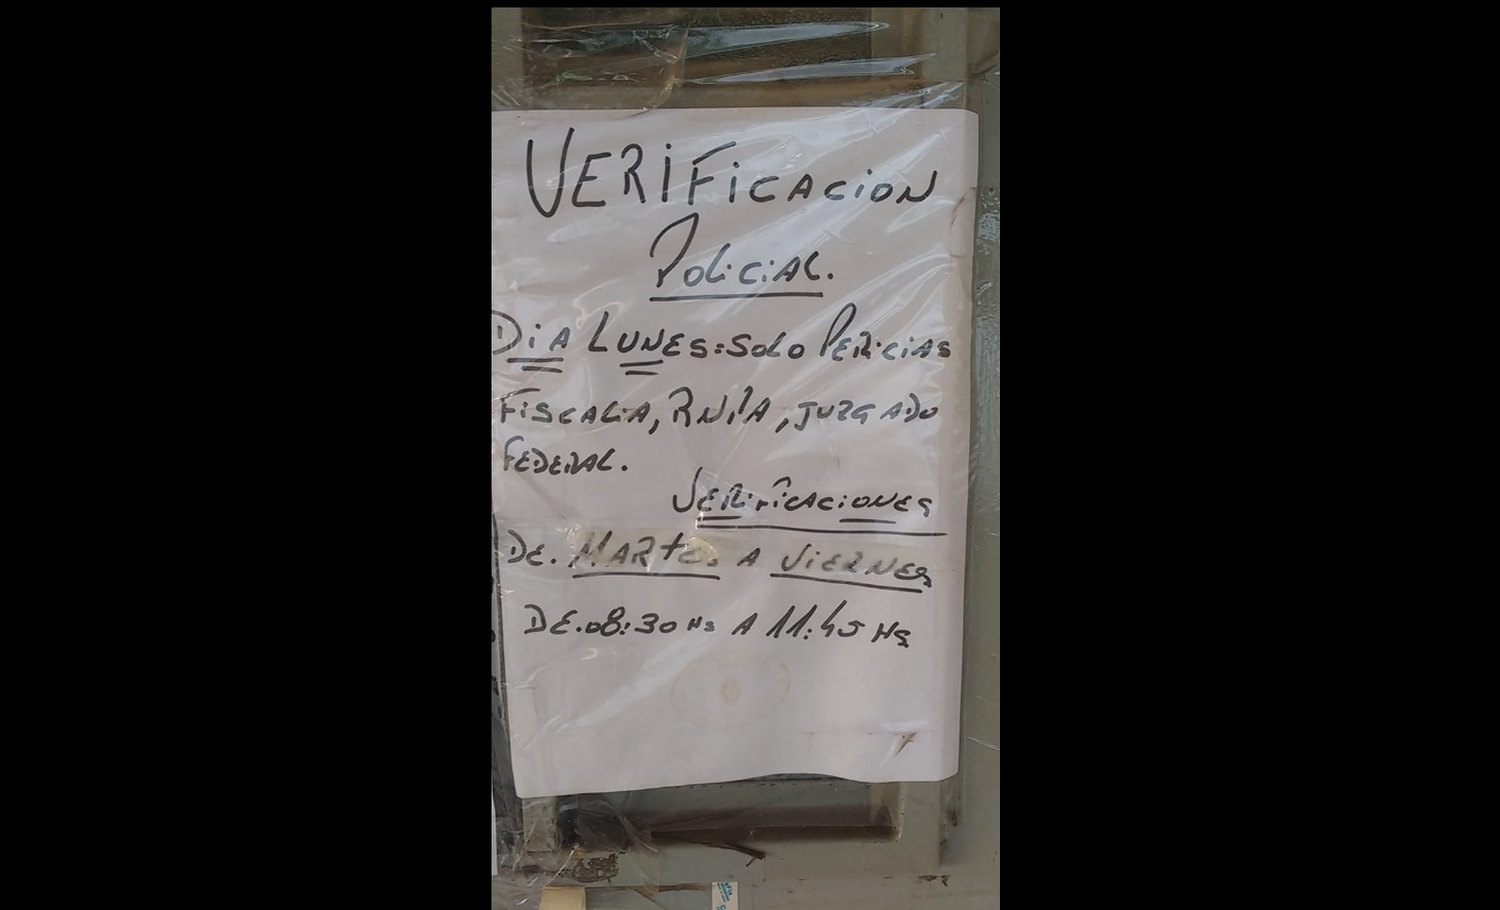 VERIFICACION
POLICIAL.
DIA LUNES: SOLO PERICIAS
FISCALIA, RNPA, JUZGADO
FEDERAL.
VERIFICACIONES
DE. MARTES A VIERNES
DE. 08:30 HS A 11:45 HS